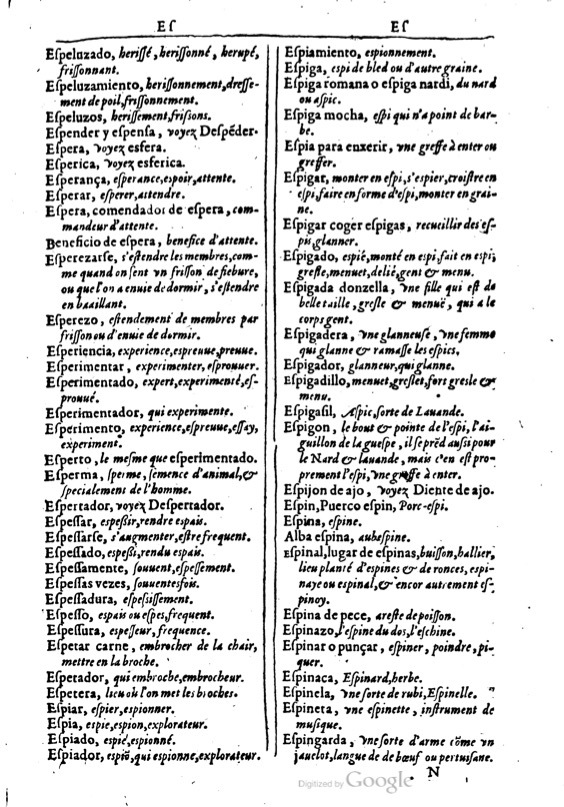 Eſ
Eſpeluzado, heriſſé, heriſſonné, herupé,
friſſonnant.
Eſpeluzamiento, heriſſonnement, dreſſe-
ment de poil, friſſonnement.
Eſpeluzos, heriſſement, friſons.
Eſpender y eſpenſa, voyez Deſpéder.
Eſpera, voyez esfera.
Eſperica, voyez esferica.
Eſperança, eſperance, eſpoir, attente.
Eſperar, eſperer, attendre.
Eſpera, comendador de eſpera, com-
mandeur d'attente.
Beneficio de eſpera, benefice d'attente.
Eſperezarſe, s'eſtendre les membres, com-
me quand on ſent vn friſſon de fiebure,
ou que l'on a enuie de dormir, s'eſtendre
en baaillant.
Eſperezo, eſtendement de membres par
friſſon ou d'enuie de dormir.
Eſperiencia, experience, eſpreuue, preuue.
Eſperimentar, experimenter, eſprouuer.
Eſperimentado, expert, experimenté, eſ-
prouué.
Eſperimentador, qui experimente.
Eſperimento, experience, eſpreuue, eſſay,
experiment.
Eſperto, le meſme que eſperimentado.
Eſperma, ſperme, ſemence d'animal, &
ſpecialement de l'homme.
Eſpertador, voyez Deſpertador.
Eſpeſſar, eſpeſsir, rendre eſpais.
Eſpeſſarſe, s'augmenter, eſtre frequent.
Eſpeſſado, eſpeſsi, rendu eſpais.
Eſpeſſamente, ſouuent, eſpeſſement.
Eſpeſſas vezes, ſouuentesfois.
Eſpeſſadura, eſpeſsiſſement.
Eſpeſſo, eſpais ou eſpes, frequent.
Eſpeſſura, eſpeſſeur, frequence.
Eſpetar carne, embrocher de la chair,
mettre en la broche.
Eſpetador, qui embroche, embrocheur.
Eſpetera, lieu où l'on met les broches.
Eſpiar, eſpier, eſpionner.
Eſpia, eſpie, eſpion, explorateur.
Eſpiado, eſpié, eſpionné.
Eſpiador, eſpiō, qui eſpionne, explorateur.
Eſ
Eſpiamiento, eſpionnement.
Eſpiga, eſpi de bled ou d'autre graine.
Eſpiga romana o eſpiga nardi, du nard
ou aſpic.
Eſpiga mocha, eſpi qui n'a point de bar-
be.
Eſpia para enxerir, vne greffe à enter ou
greffer.
Eſpigar, monter en eſpi, s'eſpier, croiſtre en
eſpi, faire en forme d'eſpi, monter en grai-
ne.
Eſpigar coger eſpigas, recueillir des eſ-
pis, glanner.
Eſpigado, eſpié, monté en eſpi, fait en eſpi,
greſle, menuet, delié, gent & menu.
Eſpigada donzella, vne fille qui eſt de
belle taille, greſle & menuë, qui a le
corps gent.
Eſpigadera, vne glanneuſe, vne femme
qui glanne & ramaſſe les eſpics.
Eſpigador, glanneur, qui glanne.
Eſpigadillo, menuet, greſlet, fort greſle &
menu.
Eſpigaſil, Aſpic, ſorte de Lauande.
Eſpigon, le bout & pointe de l'eſpi, l'ai-
guillon de la gueſpe, il ſe prēd auſsi pour
le Nard & lauande, mais c'en eſt pro-
prement l'eſpi, vne greffe à enter.
Eſpijon de ajo, voyez Diente de ajo.
Eſpin, Puerco eſpin, Porc-eſpi.
Eſpina, eſpine.
Alba eſpina, aubeſpine.
Eſpinal, lugar de eſpinas, buiſſon, hallier,
lieu planté d'eſpines & de ronces, eſpi-
naye ou eſpinal, & encor autrement eſ-
pinoy.
Eſpina de pece, areſte de poiſſon.
Eſpinazo, l'eſpine du dos, l'eſchine.
Eſpinar o punçar, eſpiner, poindre, pi-
quer.
Eſpinaca, Eſpinard, herbe.
Eſpinela, vne ſorte de rubi, Eſpinelle.
Eſpineta, vne eſpinette, inſtrument de
muſique.
Eſpingarda, vne ſorte d'arme cōme vn
jauelot, langue de de bœuf ou pertuiſane.
N
Digitized by Google